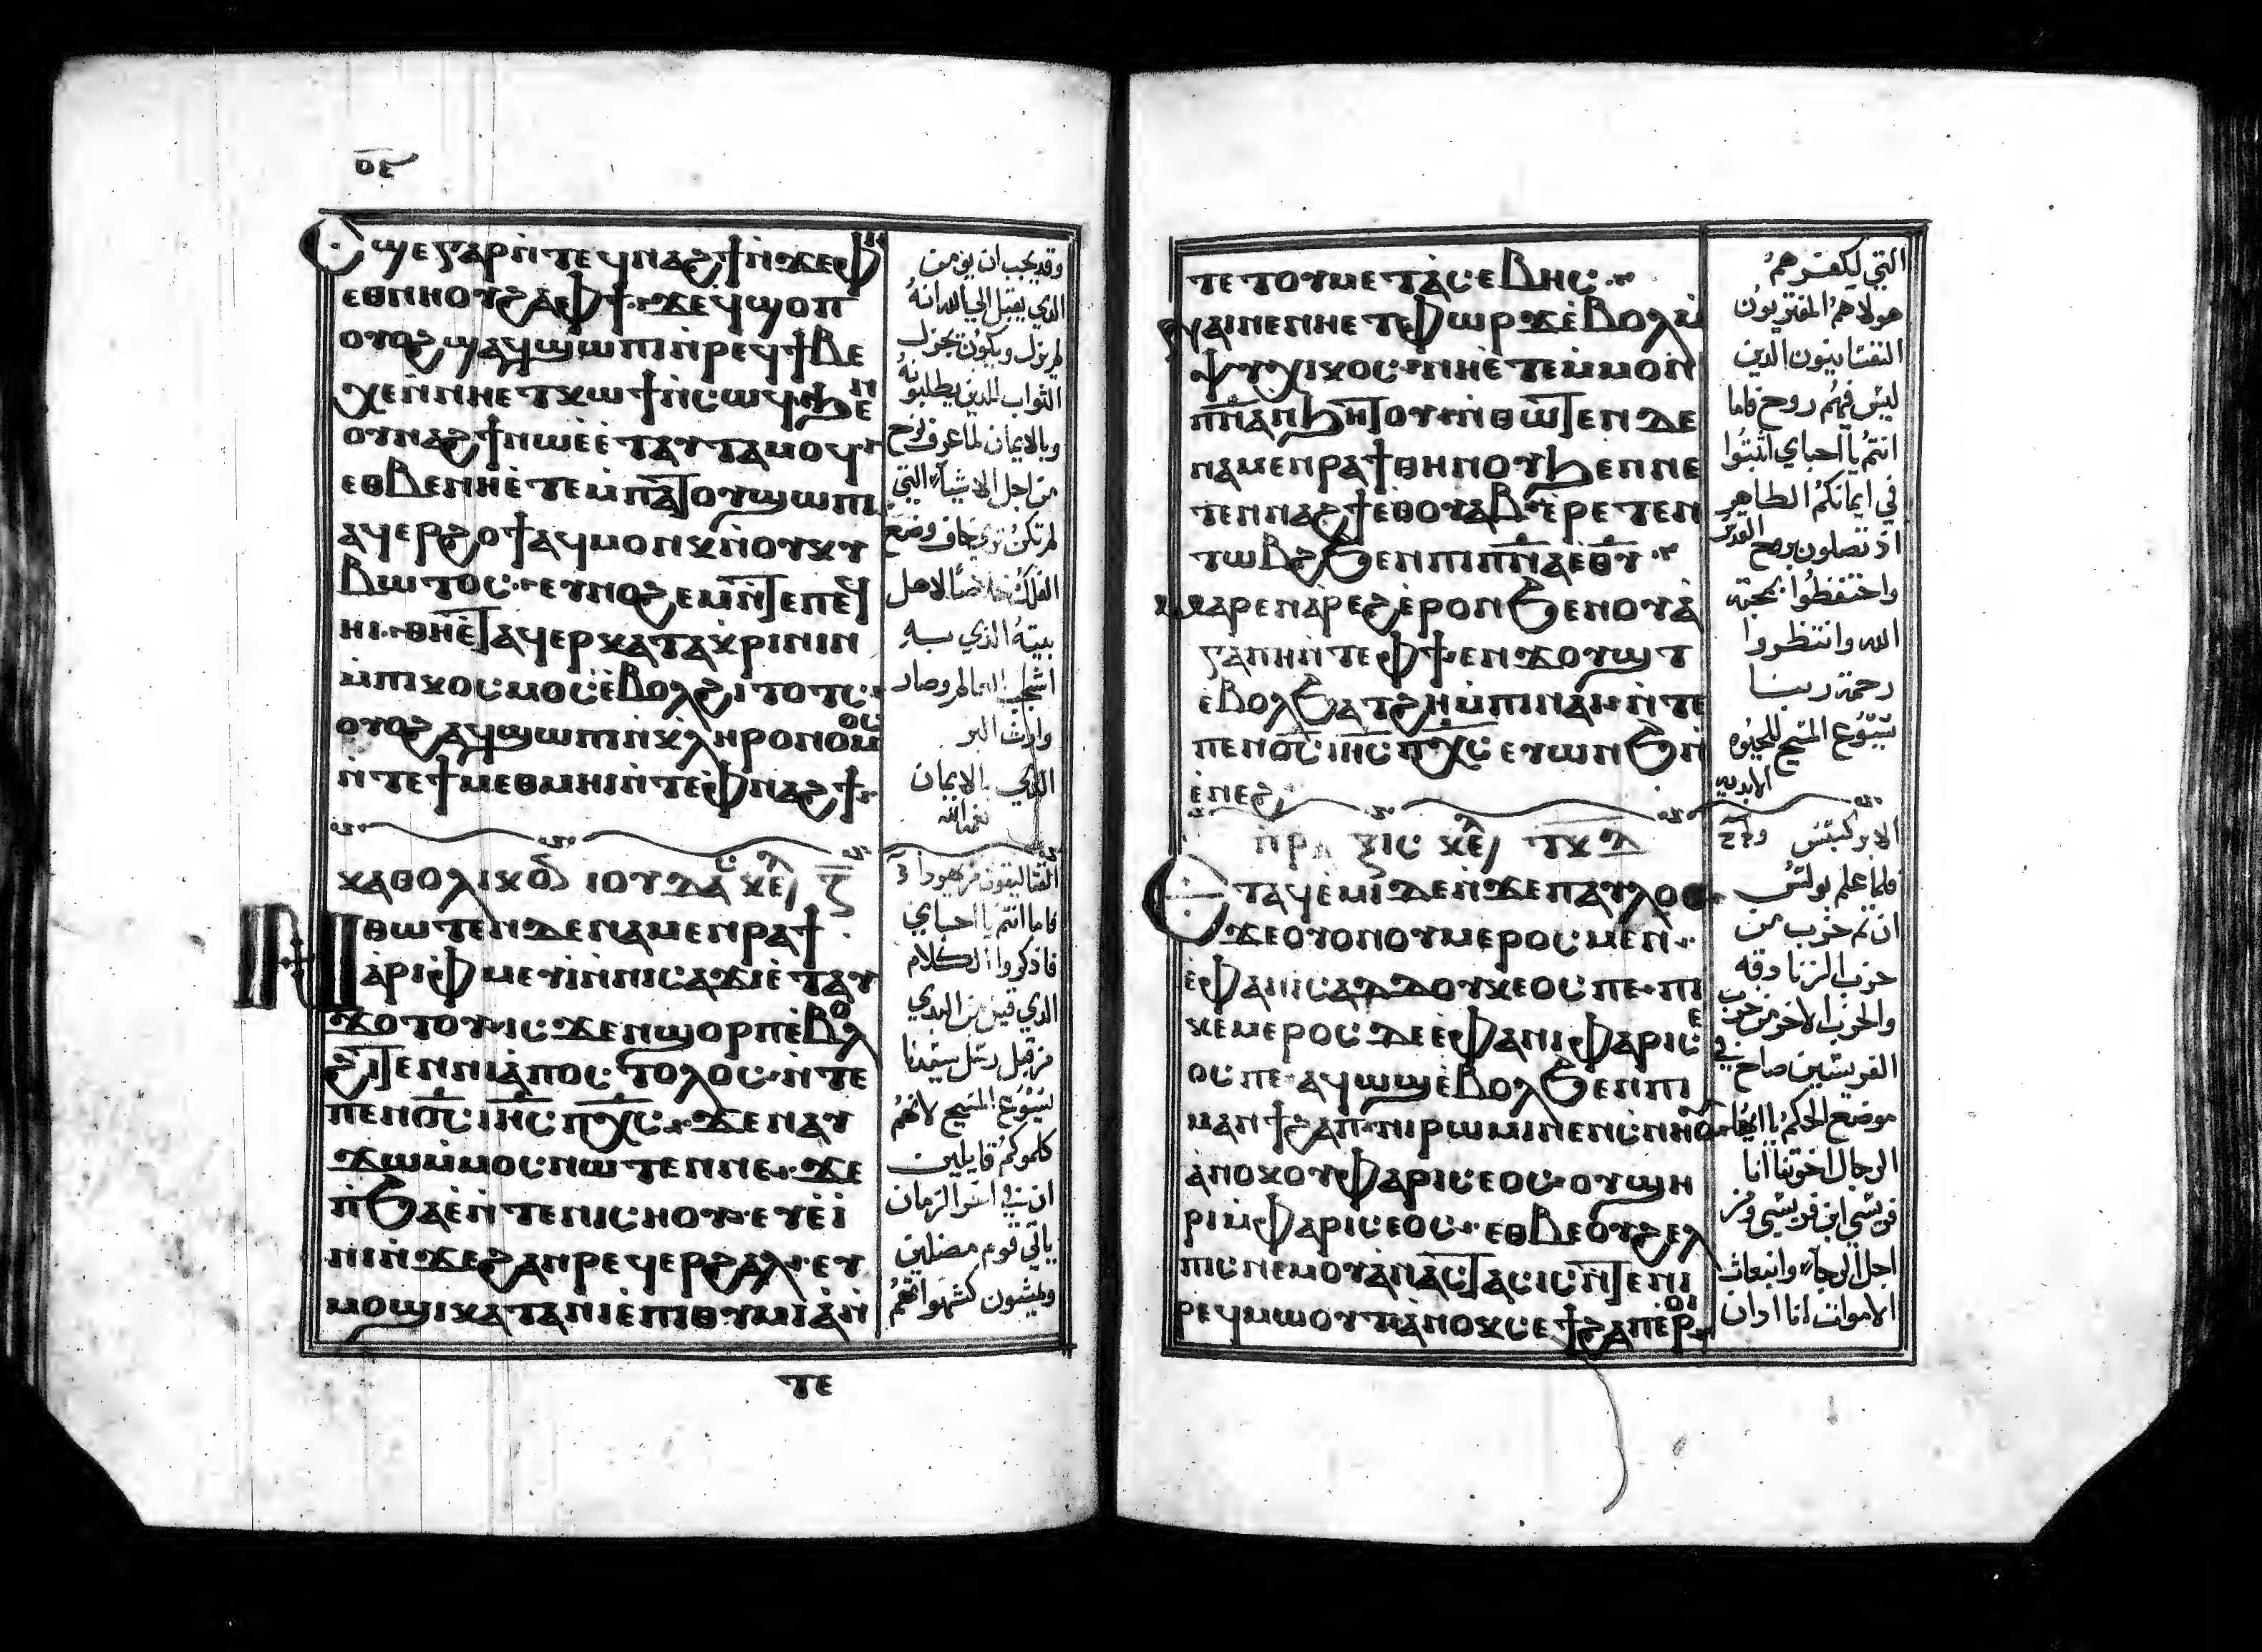 ⲟⲉ
Ⲥϣⲉ ⲅⲁⲣ ⲛ̀ⲧⲉϥⲛⲁϩϯ ⲛ̀ϫⲉ ⲫⲏ
ⲉⲑⲛⲏⲟⲩ ϩⲁ ⲫϯ ϫⲉ ϥϣⲟⲡ
ⲟⲩⲟϩ ϣⲁϥϣⲱⲡⲓ ⲛ̀ⲣⲉϥϯⲃⲉ
ⲭⲉ ⲛ̀ⲛⲏⲉⲧⲕⲱϯ ⲛ̀ⲥⲱϥ ϧⲉⲛ
ⲟⲩⲛⲁϩϯ ⲛⲱⲉ̀ ⲉ̀ⲧⲁⲩⲧⲁⲙⲟϥ
ⲉⲑⲃⲉ ⲛⲏⲉ̀ⲧⲉⲙ̀ⲡⲁⲧⲟⲩϣⲱⲡⲓ
ⲁϥⲉⲣϩⲟϯ ⲁϥⲙⲟⲛⲕ ⲛ̀ⲟⲩⲕⲩ
ⲃⲱⲧⲟⲥ ⲉⲩⲛⲟϩⲉⲙ ⲛ̀ⲧⲉ ⲡⲉϥ
ⲏⲓ ⲑⲏⲉ̀ⲧⲁϥⲉⲣⲕⲁⲧⲁⲕⲣⲓⲛⲓⲛ
ⲙ̀ⲡⲓⲕⲟⲥⲙⲟⲥ ⲉ̀ⲃⲟⲗ ϩⲓⲧⲟⲧⲥ
ⲟⲩⲟϩ ⲁϥϣⲱⲡⲓ ⲛ̀ⲕⲗⲏⲣⲟⲛⲟⲙⲟⲥ
ⲛ̀ⲧⲉ ϯⲙⲉⲑⲙⲏⲓ ⲛ̀ⲧⲉ ⲫⲛⲁϩϯ
ⲕⲁⲑⲟⲗⲓⲕⲟⲛ ⲓⲟⲩⲇⲁⲥ ⲕⲉⲗ ⲍ
Ⲛⲑⲱⲧⲉⲛ ⲇⲉ ⲛⲁⲙⲉⲛⲣⲁϯ
ⲁⲣⲓⲫⲙⲉⲩⲓ̀ ⲛ̀ⲛⲓⲥⲁϫⲓ ⲉ̀ⲧⲁⲩ
ϫⲟⲧⲟⲩ ⲓⲥϫⲉⲛ ϣⲟⲣⲡ ⲉ̀ⲃⲟⲗ
ϩⲓⲧⲉⲛ ⲛⲓⲁ̀ⲡⲟⲥⲧⲟⲗⲟⲥ ⲛ̀ⲧⲉ
ⲡⲉⲛⲟ̅ⲥ̅ ⲓⲏ̅ⲥ̅ ⲡⲭ̅ⲥ̅ ϫⲉ ⲛⲁⲩ
ϫⲱ ⲙ̀ⲙⲟⲥ ⲛⲱⲧⲉⲛ ⲡⲉ ϫⲉ
ⲛ̀ϧⲁⲉ̀ ⲛ̀ⲧⲉ ⲛⲓⲥⲏⲟⲩ ⲉⲩⲉ̀ⲓ̀
ⲛⲓⲛ̀ϫⲉ ϩⲁⲛⲣⲉϥⲉⲣϩⲁⲗ ⲉⲩ
ⲙⲟϣⲓ ⲕⲁⲧⲁ ⲛⲓⲉ̀ⲡⲓⲑⲩⲙⲓⲁ̀ ⲛ̀
ⲧⲉ
وقد يجب ان يومن
الذي يقبل الي الله انه
لم يزل ويكون يجزل
الثواب للذين يطلبونه
وبالايمان لما عرف نوح
من اجل الاشيآء التي
لم تكن تري خاف وصنع
الفلك خلاصا لاهل
بيته الذي به
اشجب العالم وصار
وارث البر
الذي بالايمان
القتاليقون من يهودا
فاما انتم يا احباي
فاذكروا الكلام
الذي قيل من البدي
من قبل رسل سيدنا
يسوع المسيح لانهم
كلموكم قايلين
ان في اخر الزمان
ياتي قوم مضلين
ويمشون كشهواتهم
ⲧⲉ ⲧⲟⲩⲙⲉⲧⲁ̀ⲥⲉⲃⲏⲥ
ⲫⲁⲓ ⲛⲉ ⲛⲏⲉⲧⲫⲱⲣϫ ⲉ̀ⲃⲟⲗ ⲙ̀
ⲯⲩⲭⲓⲕⲟⲥ ⲛⲏⲉ̀ⲧⲉⲙ̀ⲙⲟⲛ
ⲡⲛ̅ⲁ̅ ⲛϧⲏⲧⲟⲩ ⲛ̀ⲑⲱⲧⲉⲛ ⲇⲉ
ⲛⲁⲙⲉⲛⲣⲁϯ ⲑⲏⲛⲟⲩ ϧⲉⲛ ⲡⲉ
ⲧⲉⲛⲛⲁϩϯ ⲉⲑⲟⲩⲁⲃ ⲉ̀ⲣⲉⲧⲉⲛ
ⲧⲱⲃϩ ϧⲉⲛ ⲡⲓⲡⲛ̅ⲁ̅ ⲉⲑⲩ
ⲙⲁⲣⲉⲛⲁ̀ⲣⲉϩ ⲉ̀ⲣⲟⲛ ϧⲉⲛ ⲟⲩⲁ̀
ⲅⲁⲡⲏ ⲛ̀ⲧⲉ ⲫϯ ⲉⲛϫⲟⲩϣⲧ
ⲉ̀ⲃⲟⲗ ϧⲁⲧϩⲏ ⲙ̀ⲡⲓⲛⲁⲓ ⲛ̀ⲧⲉ
ⲡⲉⲛⲟ̅ⲥ̅ ⲓⲏ̅ⲥ̅ ⲡⲭ̅ⲥ̅ ⲉⲩⲱⲛϧ ⲛ̀
ⲉ̀ⲛⲉϩ
ⲡⲣⲁⲝⲓⲥ ⲕⲉⲗ
Ⲉⲧⲁϥⲉ̀ⲙⲓ ⲇⲉ ⲛ̀ϫⲉ ⲡⲁⲩⲗⲟⲥ
ϫⲉ ⲟⲩⲟⲛ ⲟⲩⲙⲉⲣⲟⲥ ⲙⲉⲛ
ⲉ̀ⲫⲁⲛⲓⲥⲁⲇⲇⲟⲩⲕⲉⲟⲥ ⲡⲉ ⲡⲓ
ⲕⲉⲙⲉⲣⲟⲥ ⲇⲉ ⲉⲫⲁⲛⲓⲫⲁⲣⲓⲥⲉ
ⲟⲥ ⲡⲉ ⲁϥⲱϣ ⲉ̀ⲃⲟⲗ ϧⲉⲛ ⲡⲓ
ⲙⲁⲛϯϩⲁⲡ ⲛⲓⲣⲱⲙⲓ ⲛⲉⲛⲥⲛⲏⲟⲩ
ⲁⲛⲟⲕ ⲟⲩⲫⲁⲣⲓⲥⲉⲟⲥ ⲟⲩϣⲏ
ⲣⲓ ⲙ̀ⲫⲁⲣⲓⲥⲉⲟⲥ ⲉⲑⲃⲉ ⲟⲩϩⲉⲗ
ⲡⲓⲥ ⲛⲉⲙ ⲟⲩⲁ̀ⲛⲁⲥⲧⲁⲥⲓⲥ ⲛ̀ⲧⲉ ⲛⲓ
ⲣⲉϥⲙⲱⲟⲩⲧ ⲁ̀ⲛⲟⲕ ⲥⲉϯϩⲁⲡ ⲉ̀ⲣⲟⲓ
التي لكفرهم
هولاء هم المفتريون
النفسانيون الذين
ليس فيهم روح فاما
انتم يا احباي اثبتوا
في ايمانكم الطاهر
اذ تصلون بروح القدس
واحتفظوا بمحبة
الله وانتظروا
رحمة ربنا
يسوع المسيح للحيوه
الابديه
الابركسس
فلما علم بولس
ان ثم حزب من
حزب الزنادقه
والحزب الاخر من حزب
الفريسيين صاح في
موضع الحكم يا ايها
الرجال اخوتنا انا
فريسي ابن فريسي ومن
اجل الرجآء وانبعاث
الاموات انا ادان